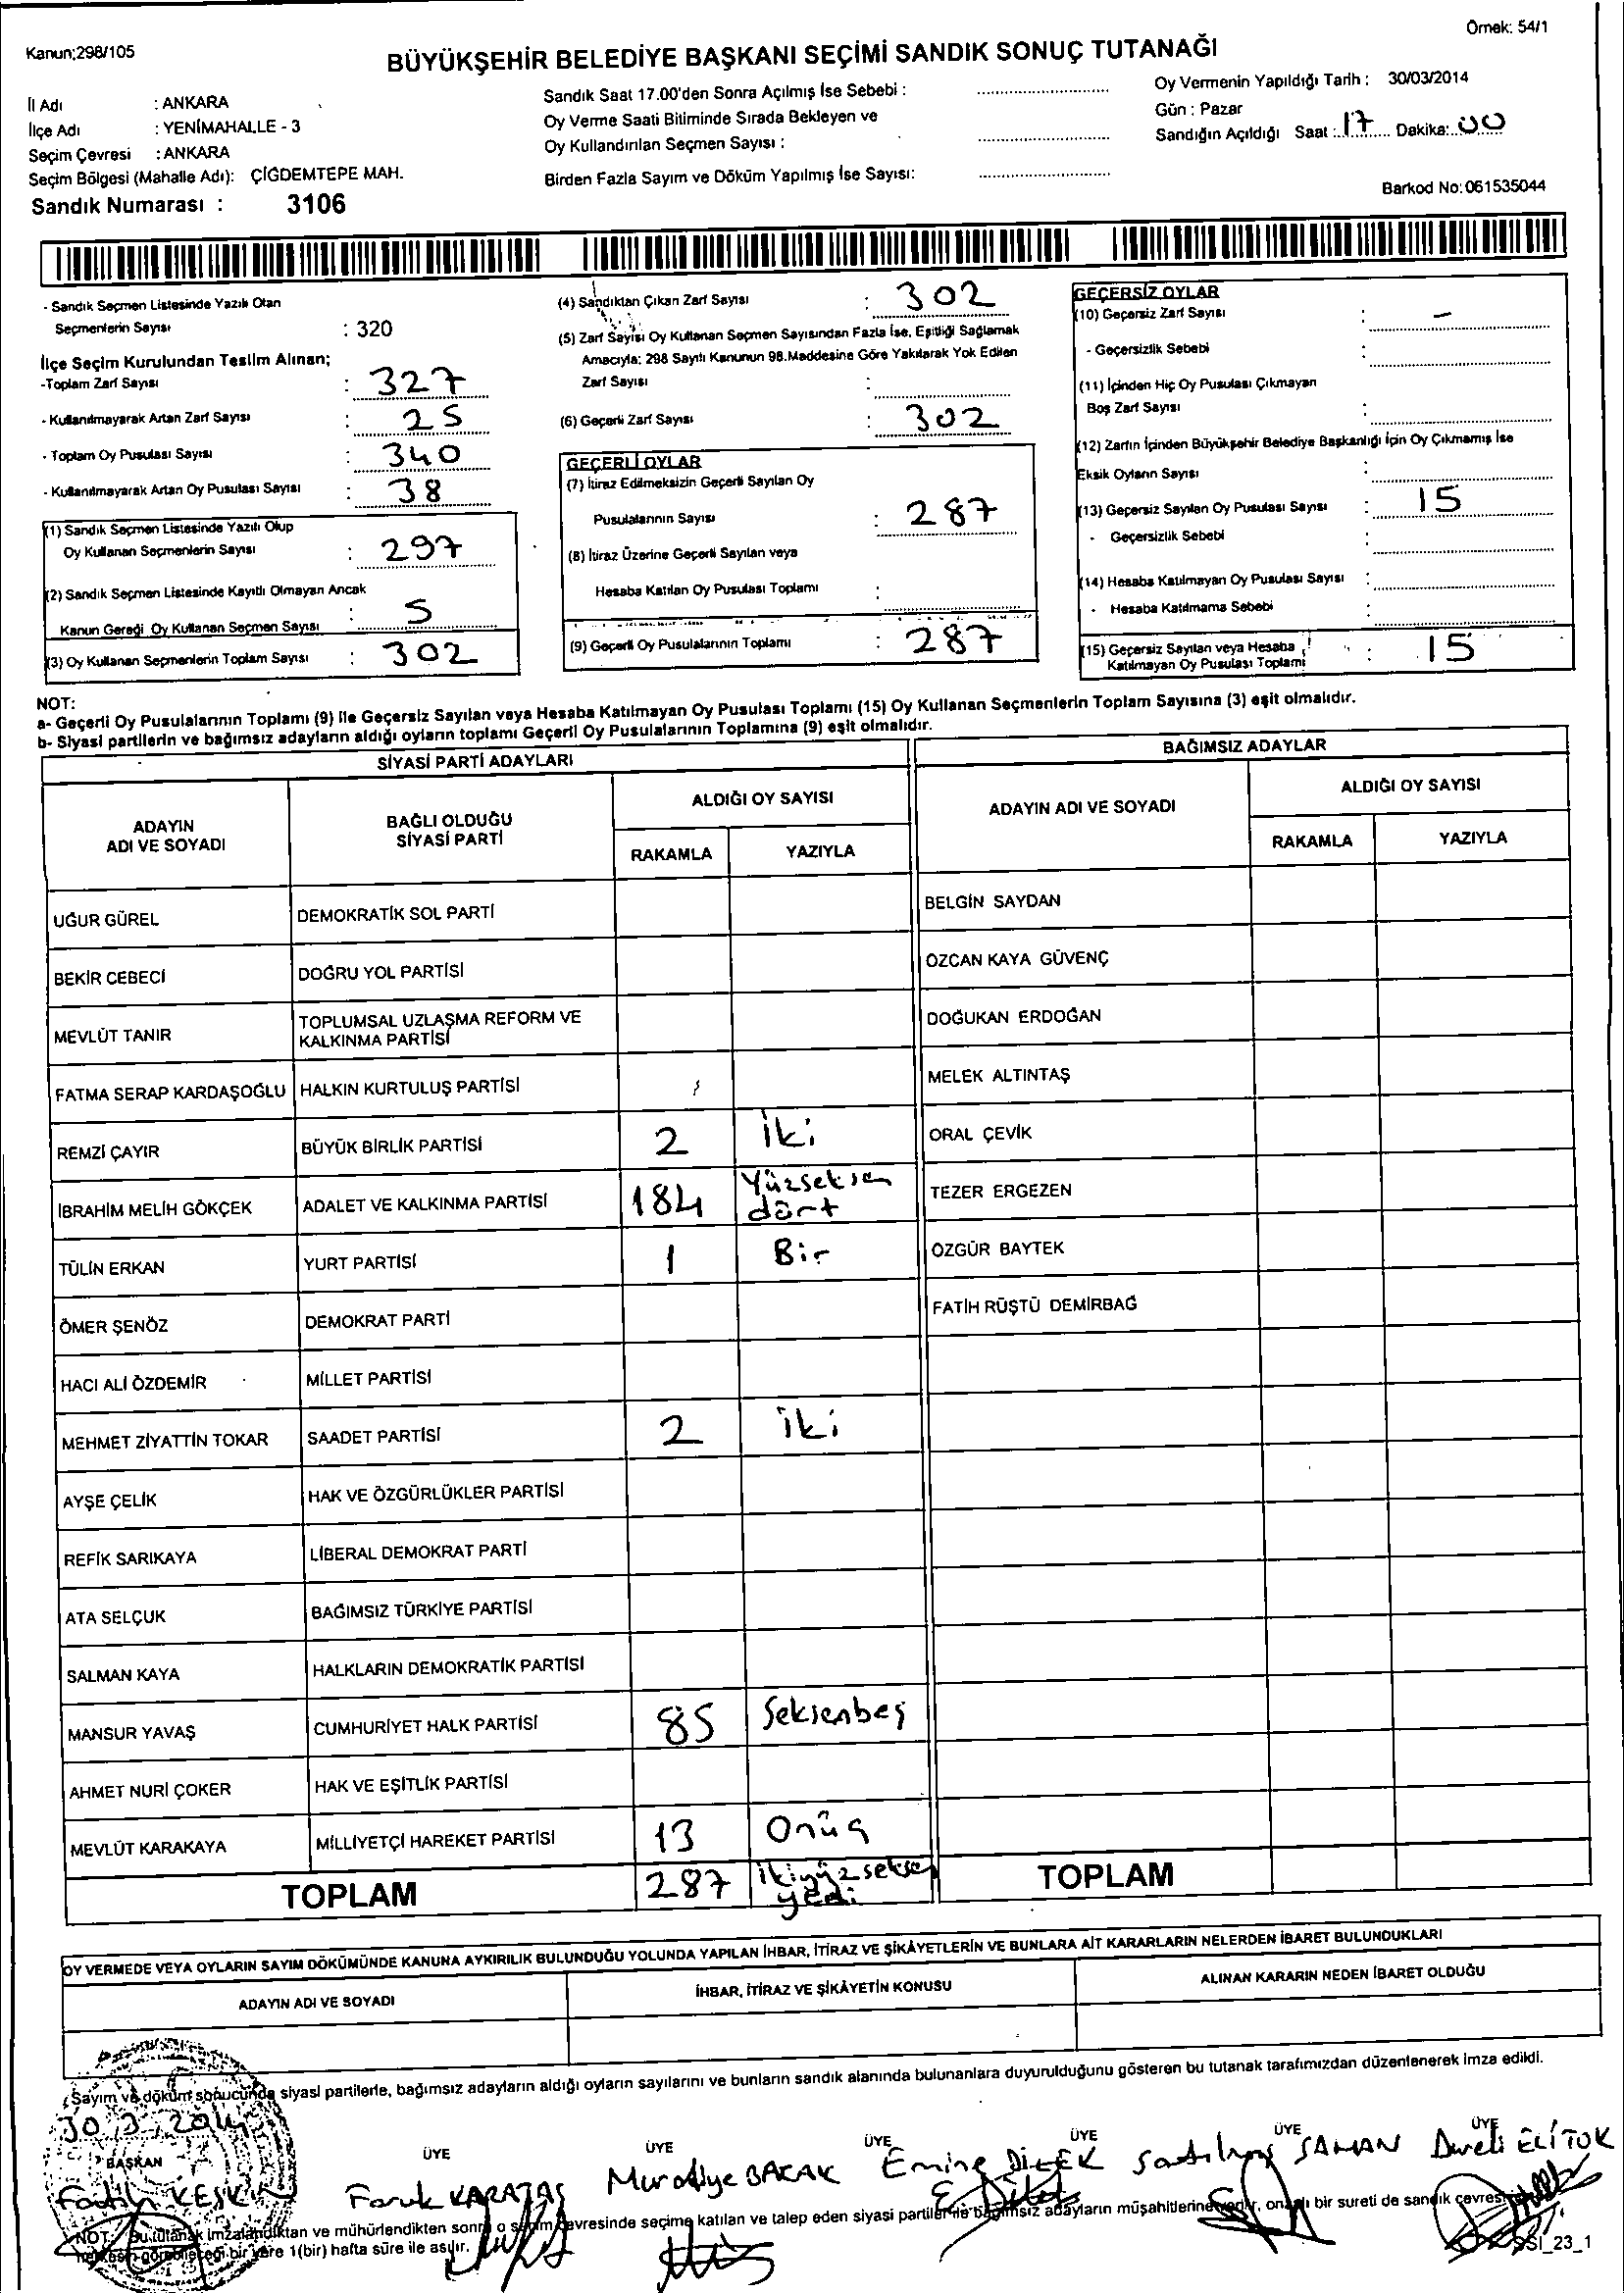 Örnek: 54/1
Kanun;298/105
BÜYÜKŞEHİR BELEDİYE BAŞKANI SEÇİMİ SANDIK SONUÇ TUTANAĞI
İl Adı : ANKARA
İlçe Adı : YENİMAHALLE - 3
Seçim Çevresi : ANKARA
Seçim Bölgesi (Mahalle Adı): ÇİGDEMTEPE MAH.
Sandık Numarası : 3106
Sandık Saat 17.00'den Sonra Açılmış İse Sebebi :
Oy Verme Saati Bitiminde Sırada Bekleyen ve
Oy Kullandırılan Seçmen Sayısı :
Birden Fazla Sayım ve Döküm Yapılmış İse Sayısı:
Oy Vermenin Yapıldığı Tarih : 30/03/2014
Gün : Pazar
Sandığın Açıldığı Saat : 17 Dakika: 00
Barkod No: 061535044
- Sandık Seçmen Listesinde Yazılı Olan
Seçmenlerin Sayısı : 320
İlçe Seçim Kurulundan Teslim Alınan;
-Toplam Zarf Sayısı : 327
- Kullanılmayarak Artan Zarf Sayısı : 25
- Toplam Oy Pusulası Sayısı : 340
- Kullanılmayarak Artan Oy Pusulası Sayısı : 38
(1) Sandık Seçmen Listesinde Yazılı Olup
Oy Kullanan Seçmenlerin Sayısı : 297
(2) Sandık Seçmen Listesinde Kayıtlı Olmayan Ancak
Kanun Gereği Oy Kullanan Seçmen Sayısı : 5
(3) Oy Kullanan Seçmenlerin Toplam Sayısı : 302
(4) Sandıktan Çıkan Zarf Sayısı : 302
(5) Zarf Sayısı Oy Kullanan Seçmen Sayısından Fazla İse, Eşitliği Sağlamak
Amacıyla; 298 Sayılı Kanunun 98.Maddesine Göre Yakılarak Yok Edilen
Zarf Sayısı :
(6) Geçerli Zarf Sayısı : 302
GEÇERLİ OYLAR
(7) İtiraz Edilmeksizin Geçerli Sayılan Oy
Pusulalarının Sayısı : 287
(8) İtiraz Üzerine Geçerli Sayılan veya
Hesaba Katılan Oy Pusulası Toplamı :
(9) Geçerli Oy Pusulalarının Toplamı : 287
GEÇERSİZ OYLAR
(10) Geçersiz Zarf Sayısı : -
- Geçersizlik Sebebi :
(11) İçinden Hiç Oy Pusulası Çıkmayan
Boş Zarf Sayısı :
(12) Zarfın İçinden Büyükşehir Belediye Başkanlığı İçin Oy Çıkmamış İse
Eksik Oyların Sayısı :
(13) Geçersiz Sayılan Oy Pusulası Sayısı : 15
- Geçersizlik Sebebi :
(14) Hesaba Katılmayan Oy Pusulası Sayısı :
- Hesaba Katılmama Sebebi :
(15) Geçersiz Sayılan veya Hesaba
Katılmayan Oy Pusulası Toplamı : 15
NOT:
a- Geçerli Oy Pusulalarının Toplamı (9) ile Geçersiz Sayılan veya Hesaba Katılmayan Oy Pusulası Toplamı (15) Oy Kullanan Seçmenlerin Toplam Sayısına (3) eşit olmalıdır.
b- Siyasi partilerin ve bağımsız adayların aldığı oyların toplamı Geçerli Oy Pusulalarının Toplamına (9) eşit olmalıdır.
SİYASİ PARTİ ADAYLARI
ADAYIN
ADI VE SOYADI
BAĞLI OLDUĞU
SİYASİ PARTİ
ALDIĞI OY SAYISI
RAKAMLA YAZIYLA
UĞUR GÜREL DEMOKRATİK SOL PARTİ
BEKİR CEBECİ DOĞRU YOL PARTİSİ
MEVLÜT TANIR TOPLUMSAL UZLAŞMA REFORM VE
KALKINMA PARTİSİ
FATMA SERAP KARDAŞOĞLU HALKIN KURTULUŞ PARTİSİ
REMZİ ÇAYIR BÜYÜK BİRLİK PARTİSİ 2 iki
İBRAHİM MELİH GÖKÇEK ADALET VE KALKINMA PARTİSİ 184 Yüzseksen
dört
TÜLİN ERKAN YURT PARTİSİ 1 Bir
ÖMER ŞENÖZ DEMOKRAT PARTİ
HACI ALİ ÖZDEMİR MİLLET PARTİSİ
MEHMET ZİYATTİN TOKAR SAADET PARTİSİ 2 iki
AYŞE ÇELİK HAK VE ÖZGÜRLÜKLER PARTİSİ
REFİK SARIKAYA LİBERAL DEMOKRAT PARTİ
ATA SELÇUK BAĞIMSIZ TÜRKİYE PARTİSİ
SALMAN KAYA HALKLARIN DEMOKRATİK PARTİSİ
MANSUR YAVAŞ CUMHURİYET HALK PARTİSİ 85 Seksenbeş
AHMET NURİ ÇOKER HAK VE EŞİTLİK PARTİSİ
MEVLÜT KARAKAYA MİLLİYETÇİ HAREKET PARTİSİ 13 Onüç
TOPLAM 287 ikiyüzseksen
yedi
BAĞIMSIZ ADAYLAR
ADAYIN ADI VE SOYADI
ALDIĞI OY SAYISI
RAKAMLA YAZIYLA
BELGİN SAYDAN
ÖZCAN KAYA GÜVENÇ
DOĞUKAN ERDOĞAN
MELEK ALTINTAŞ
ORAL ÇEVİK
TEZER ERGEZEN
ÖZGÜR BAYTEK
FATİH RÜŞTÜ DEMİRBAĞ
TOPLAM
OY VERMEDE VEYA OYLARIN SAYIM DÖKÜMÜNDE KANUNA AYKIRILIK BULUNDUĞU YOLUNDA YAPILAN İHBAR, İTİRAZ VE ŞİKÂYETLERİN VE BUNLARA AİT KARARLARIN NELERDEN İBARET BULUNDUKLARI
ADAYIN ADI VE SOYADI
İHBAR, İTİRAZ VE ŞİKÂYETİN KONUSU
ALINAN KARARIN NEDEN İBARET OLDUĞU
Sayım ve döküm sonucunda siyasi partilerle, bağımsız adayların aldığı oyların sayılarını ve bunların sandık alanında bulunanlara duyurulduğunu gösteren bu tutanak tarafımızdan düzenlenerek imza edildi.
30/3/2014
BAŞKAN ÜYE ÜYE ÜYE ÜYE ÜYE ÜYE
Fatih KESKİN Faruk KARATAŞ Muradiye BACAK Emine DİLEK Satılmış SAMAN ELİTOK
NOT: Bu tutanak imzalandıktan ve mühürlendikten sonra o seçim çevresinde seçime katılan ve talep eden siyasi partilerle bağımsız adayların müşahitlerine verilir, onaylı bir sureti de sandık
herkesin görebileceği bir yere 1(bir) hafta süre ile asılır.